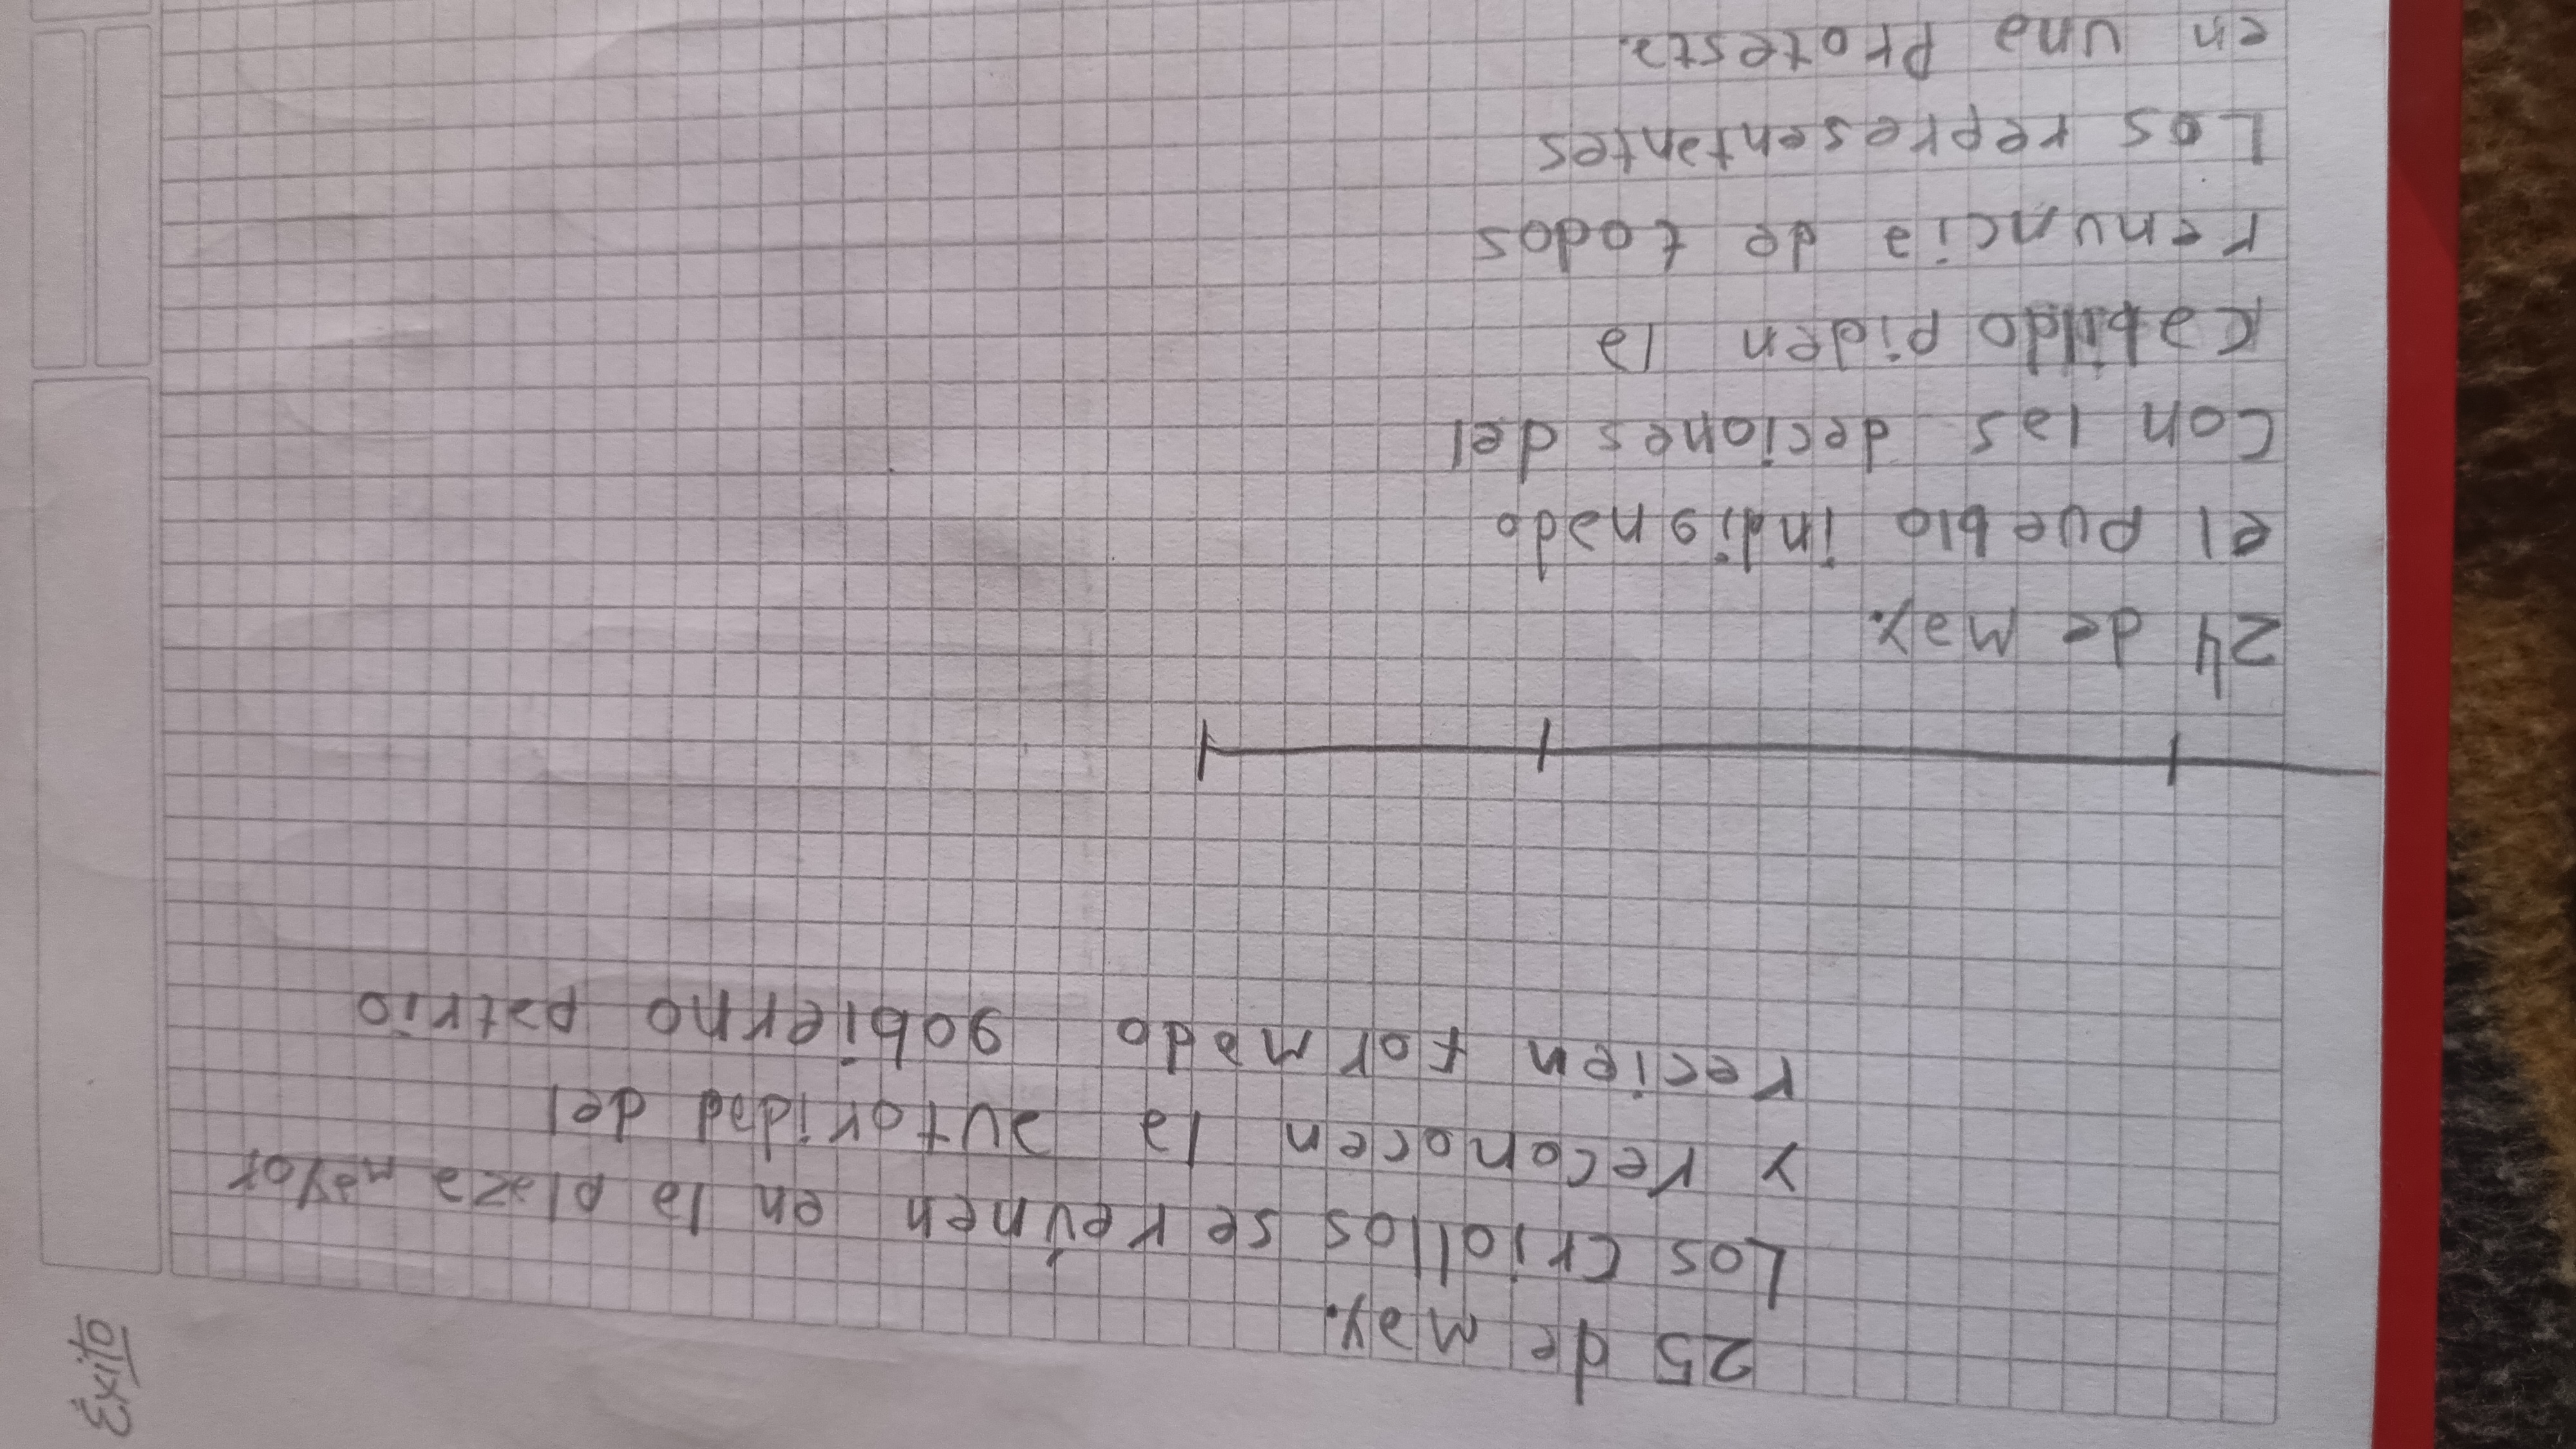 25 de may.
Los criollos se reúnen en la plaza mayor
y reconocen la autoridad del
recien formado gobierno patrio
24 de may.
el pueblo indignado
con las deciones del
cabildo piden la
renuncia de todos
Los representantes
en una protesta.
Éxito